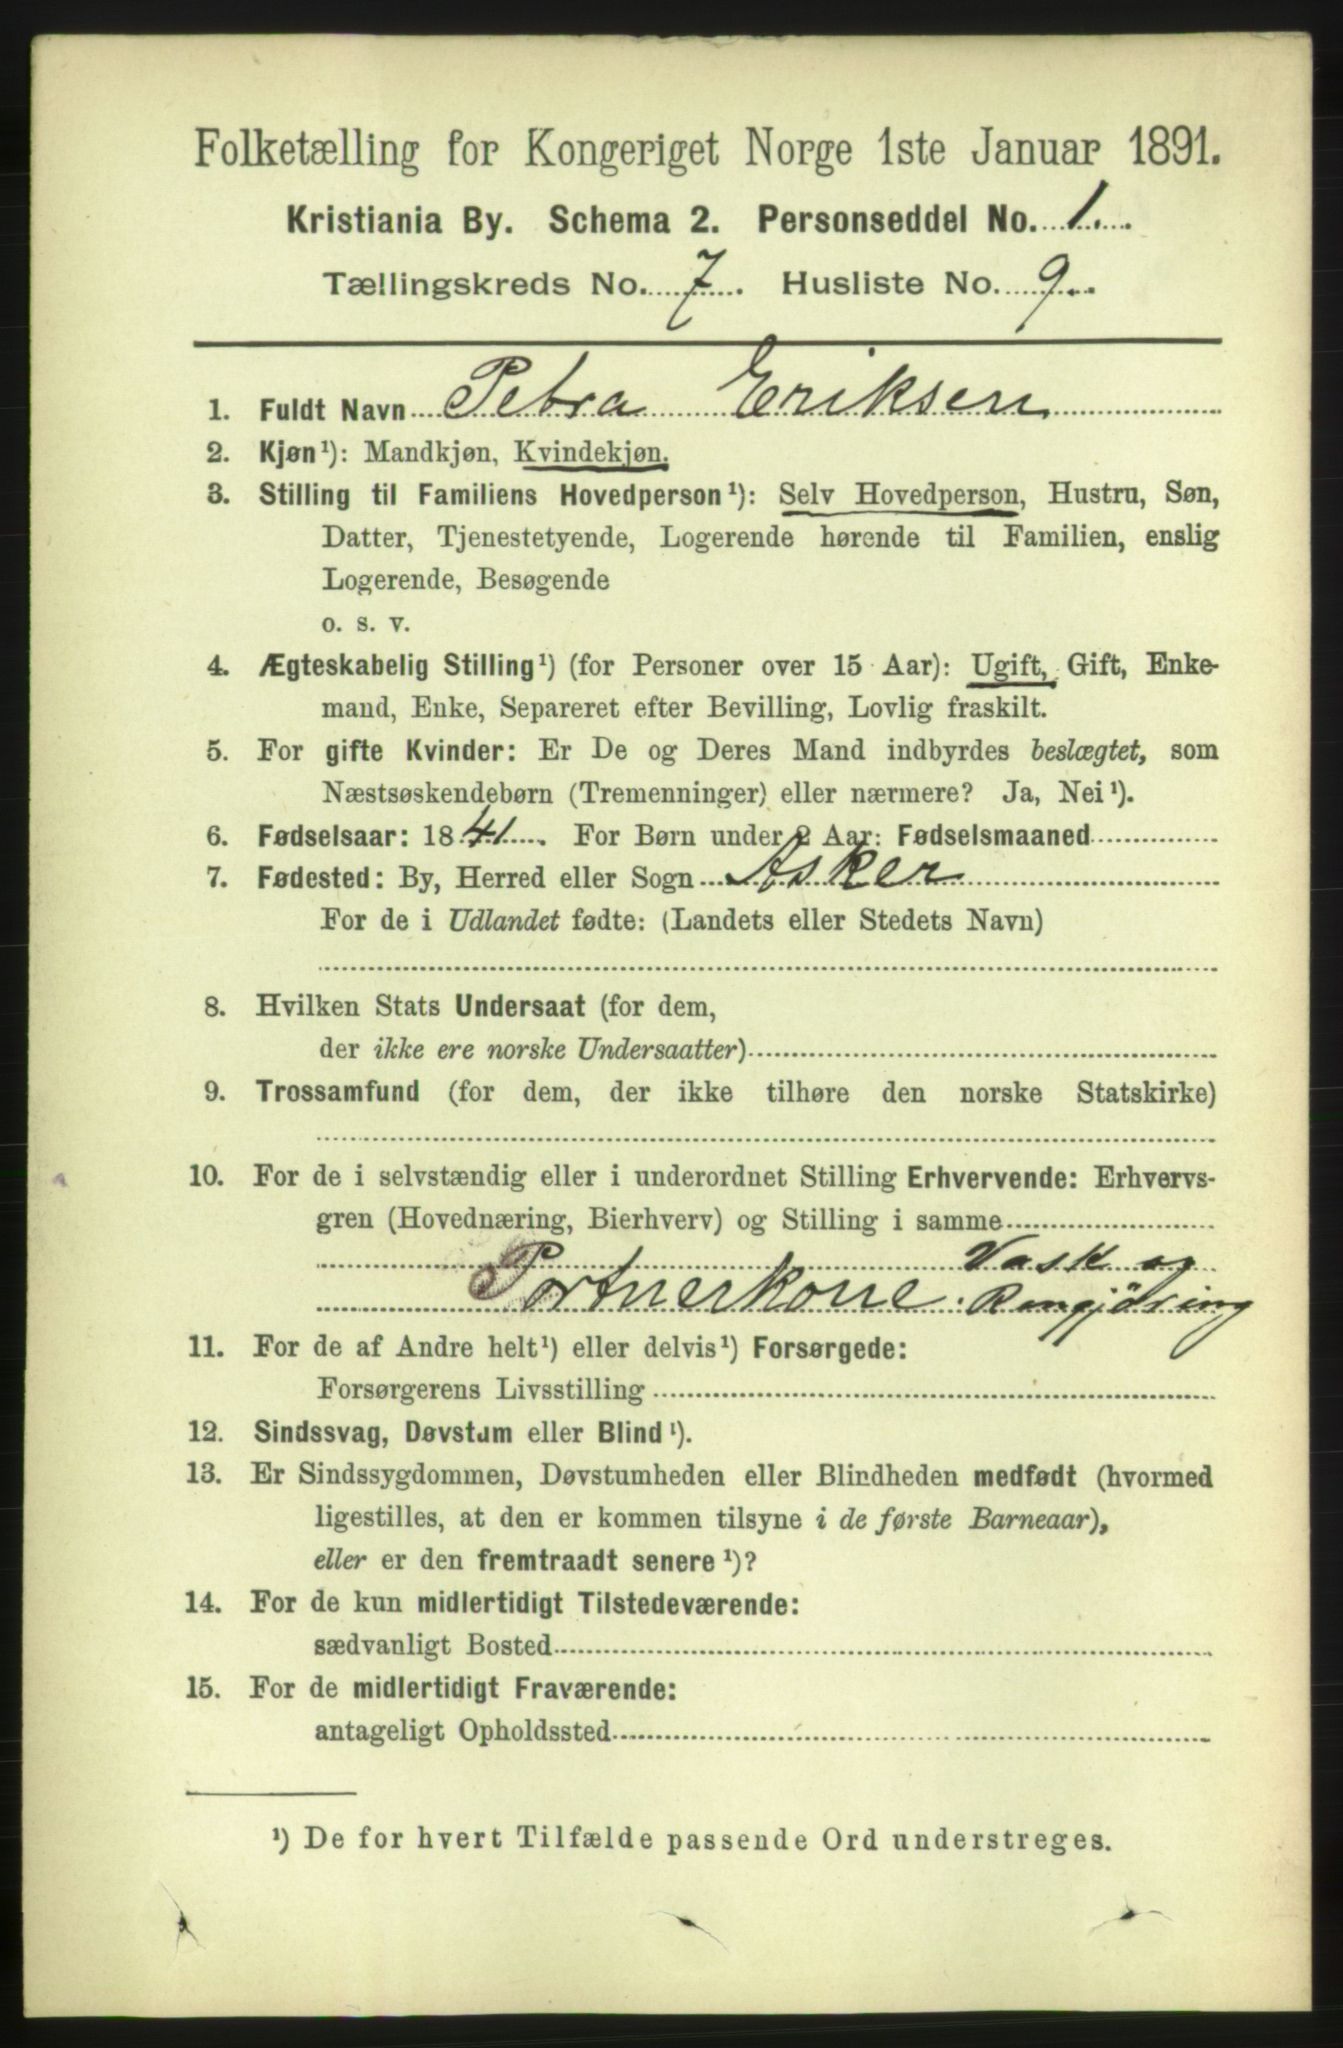 Folketælling for Kongeriget Norge 1ste Januar 1891.
Kristiania By. Schema 2. Personseddel No. 1.
Tællingskreds No. 7. Husliste No. 9.
1. Fuldt Navn Petra Eriksen
2. Kjøn¹): Mandkjøn, Kvindekjøn.
3. Stilling til Familiens Hovedperson¹): Selv Hovedperson, Hustru, Søn,
Datter, Tjenestetyende, Logerende hørende til Familien, enslig
Logerende, Besøgende
o. s. v.
4. Ægteskabelig Stilling¹) (for Personer over 15 Aar): Ugift, Gift, Enke-
mand, Enke, Separeret efter Bevilling, Lovlig fraskilt.
5. For gifte Kvinder: Er De og Deres Mand indbyrdes beslægtet, som
Næstsøskendebørn (Tremenninger) eller nærmere? Ja, Nei¹).
6. Fødselsaar: 1841. For Børn under 2 Aar: Fødselsmaaned
7. Fødested: By, Herred eller Sogn Asker
For de i Udlandet fødte: (Landets eller Stedets Navn)
8. Hvilken Stats Undersaat (for dem,
der ikke ere norske Undersaatter)
9. Trossamfund (for dem, der ikke tilhøre den norske Statskirke)
10. For de i selvstændig eller i underordnet Stilling Erhvervende: Erhvervs-
gren (Hovednæring, Bierhverv) og Stilling i samme
Vask og
Portnerkone. Rengjöring
11. For de af Andre helt¹) eller delvis¹) Forsørgede:
Forsørgerens Livsstilling
12. Sindssvag, Døvstum eller Blind¹).
13. Er Sindssygdommen, Døvstumheden eller Blindheden medfødt (hvormed
ligestilles, at den er kommen tilsyne i de første Barneaar),
eller er den fremtraadt senere¹)?
14. For de kun midlertidigt Tilstedeværende:
sædvanligt Bosted
15. For de midlertidigt Fraværende:
antageligt Opholdssted
¹) De for hvert Tilfælde passende Ord understreges.